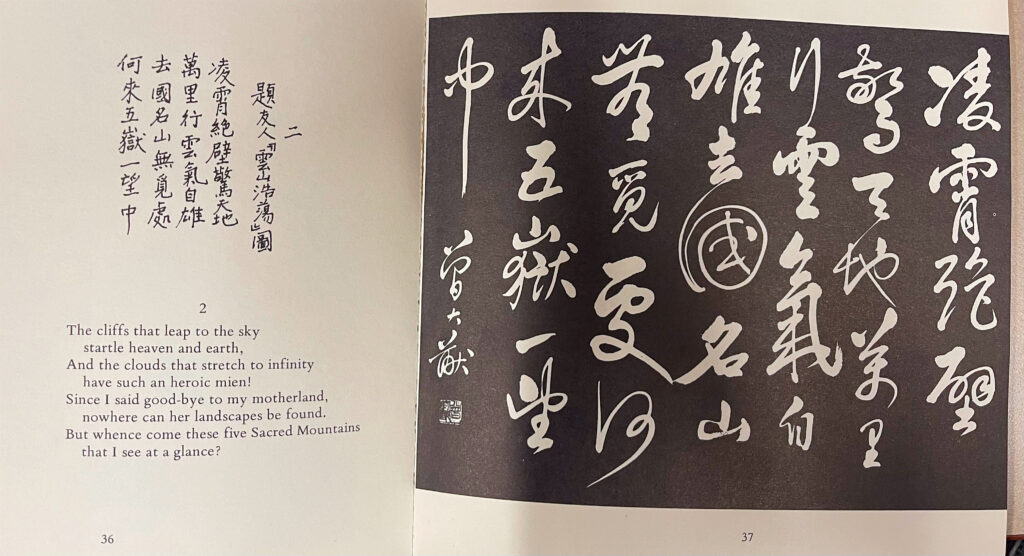 二
題友人「雲山浩蕩」圖
凌霄絕壁驚天地
萬里行雲氣自雄
去國名山無覓處
何來五嶽一望中
2
The cliffs that leap to the sky
startle heaven and earth,
And the clouds that stretch to infinity
have such an heroic mien!
Since I said good-bye to my motherland,
nowhere can her landscapes be found.
But whence come these five Sacred Mountains
that I see at a glance?
36
凌霄絕壁
驚天地萬里
行雲氣自
雄去國名山
無覓處何
來五嶽一望
中
曾大
37